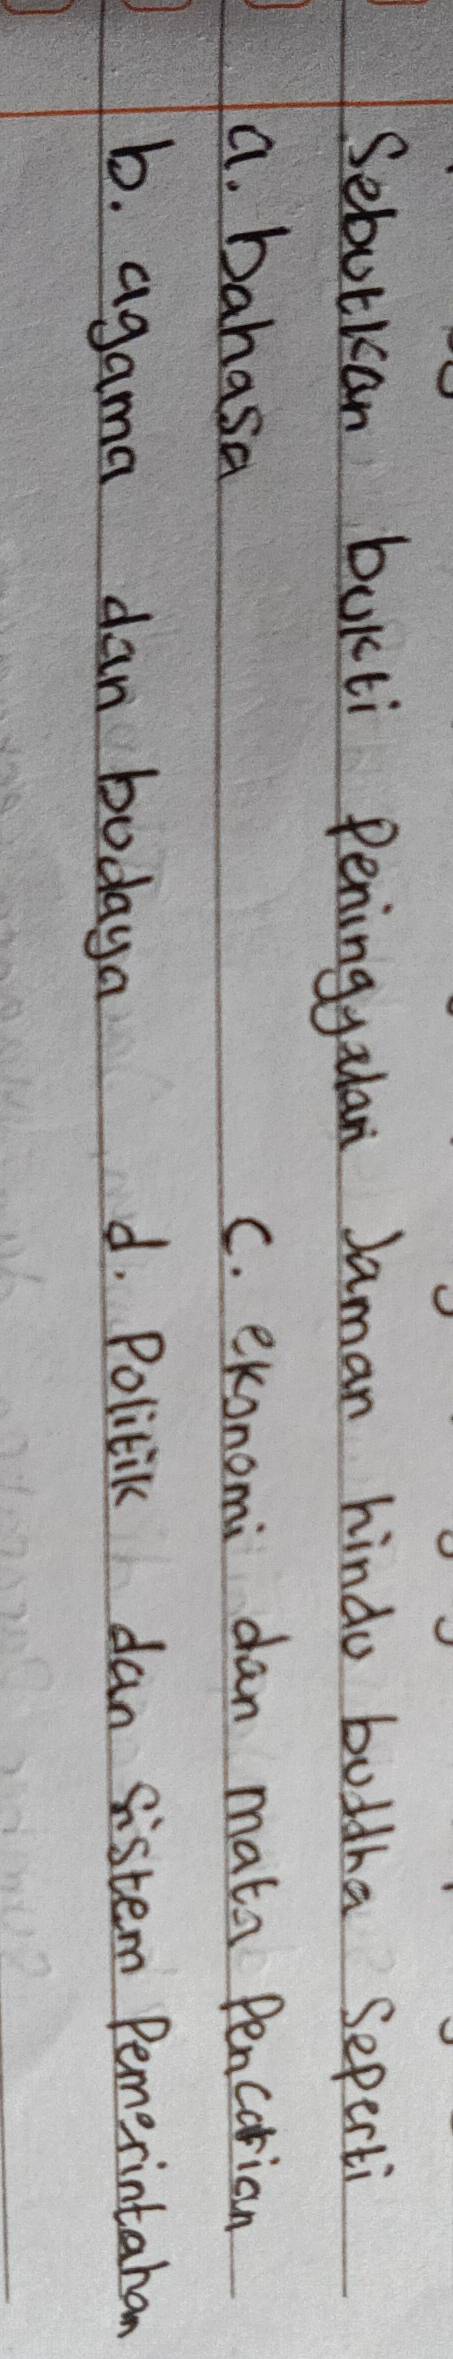 Sebutkan bukti Peninggalan Jaman hindu buddha Seperti
a. bahasa c. ekonomi dan mata Pencarian
b. agama dan budaya d. Politik dan Sistem Pemerintahan